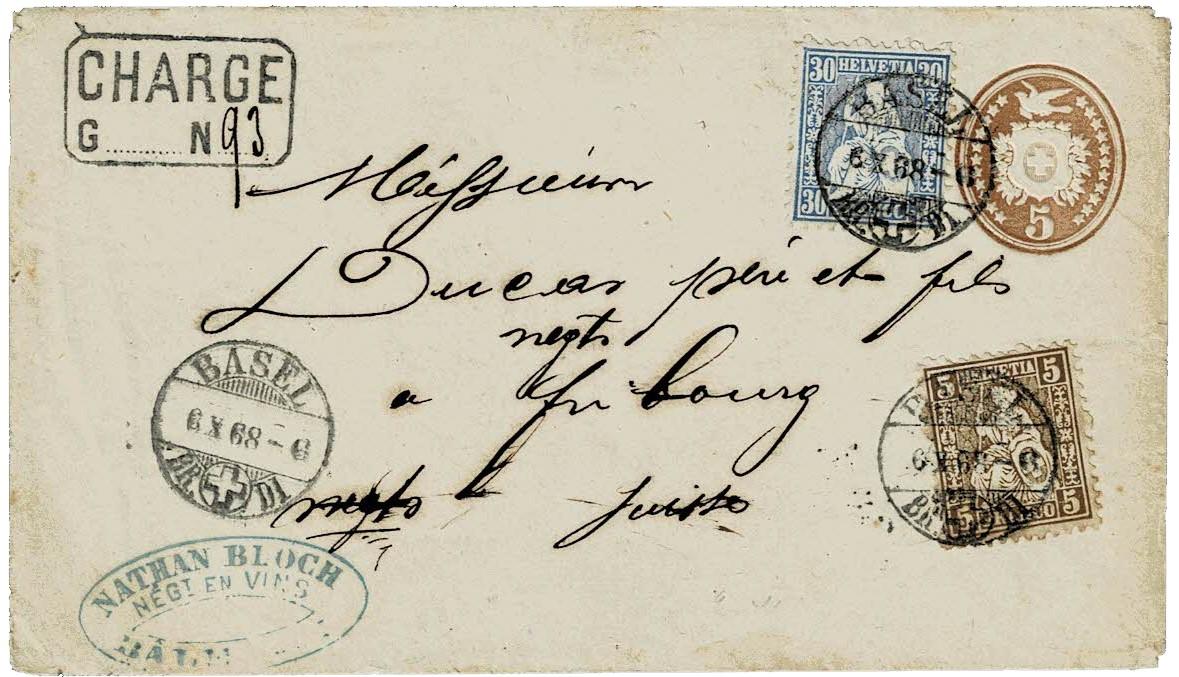 CHARGE
G.......... N 93
30 HELVETIA 30
30
BASEL
6 X 68 - G
BR. DI
5
Méssieurs
Ducas péré et fils
negts
a fribourg
negts Suisse
BASEL
6 X 68 - G
BR. DI
5 HELVETIA 5
5 5
6 X 68 G
BR. DI
NATHAN BLOCH
NÉGT EN VINS
BÂLE